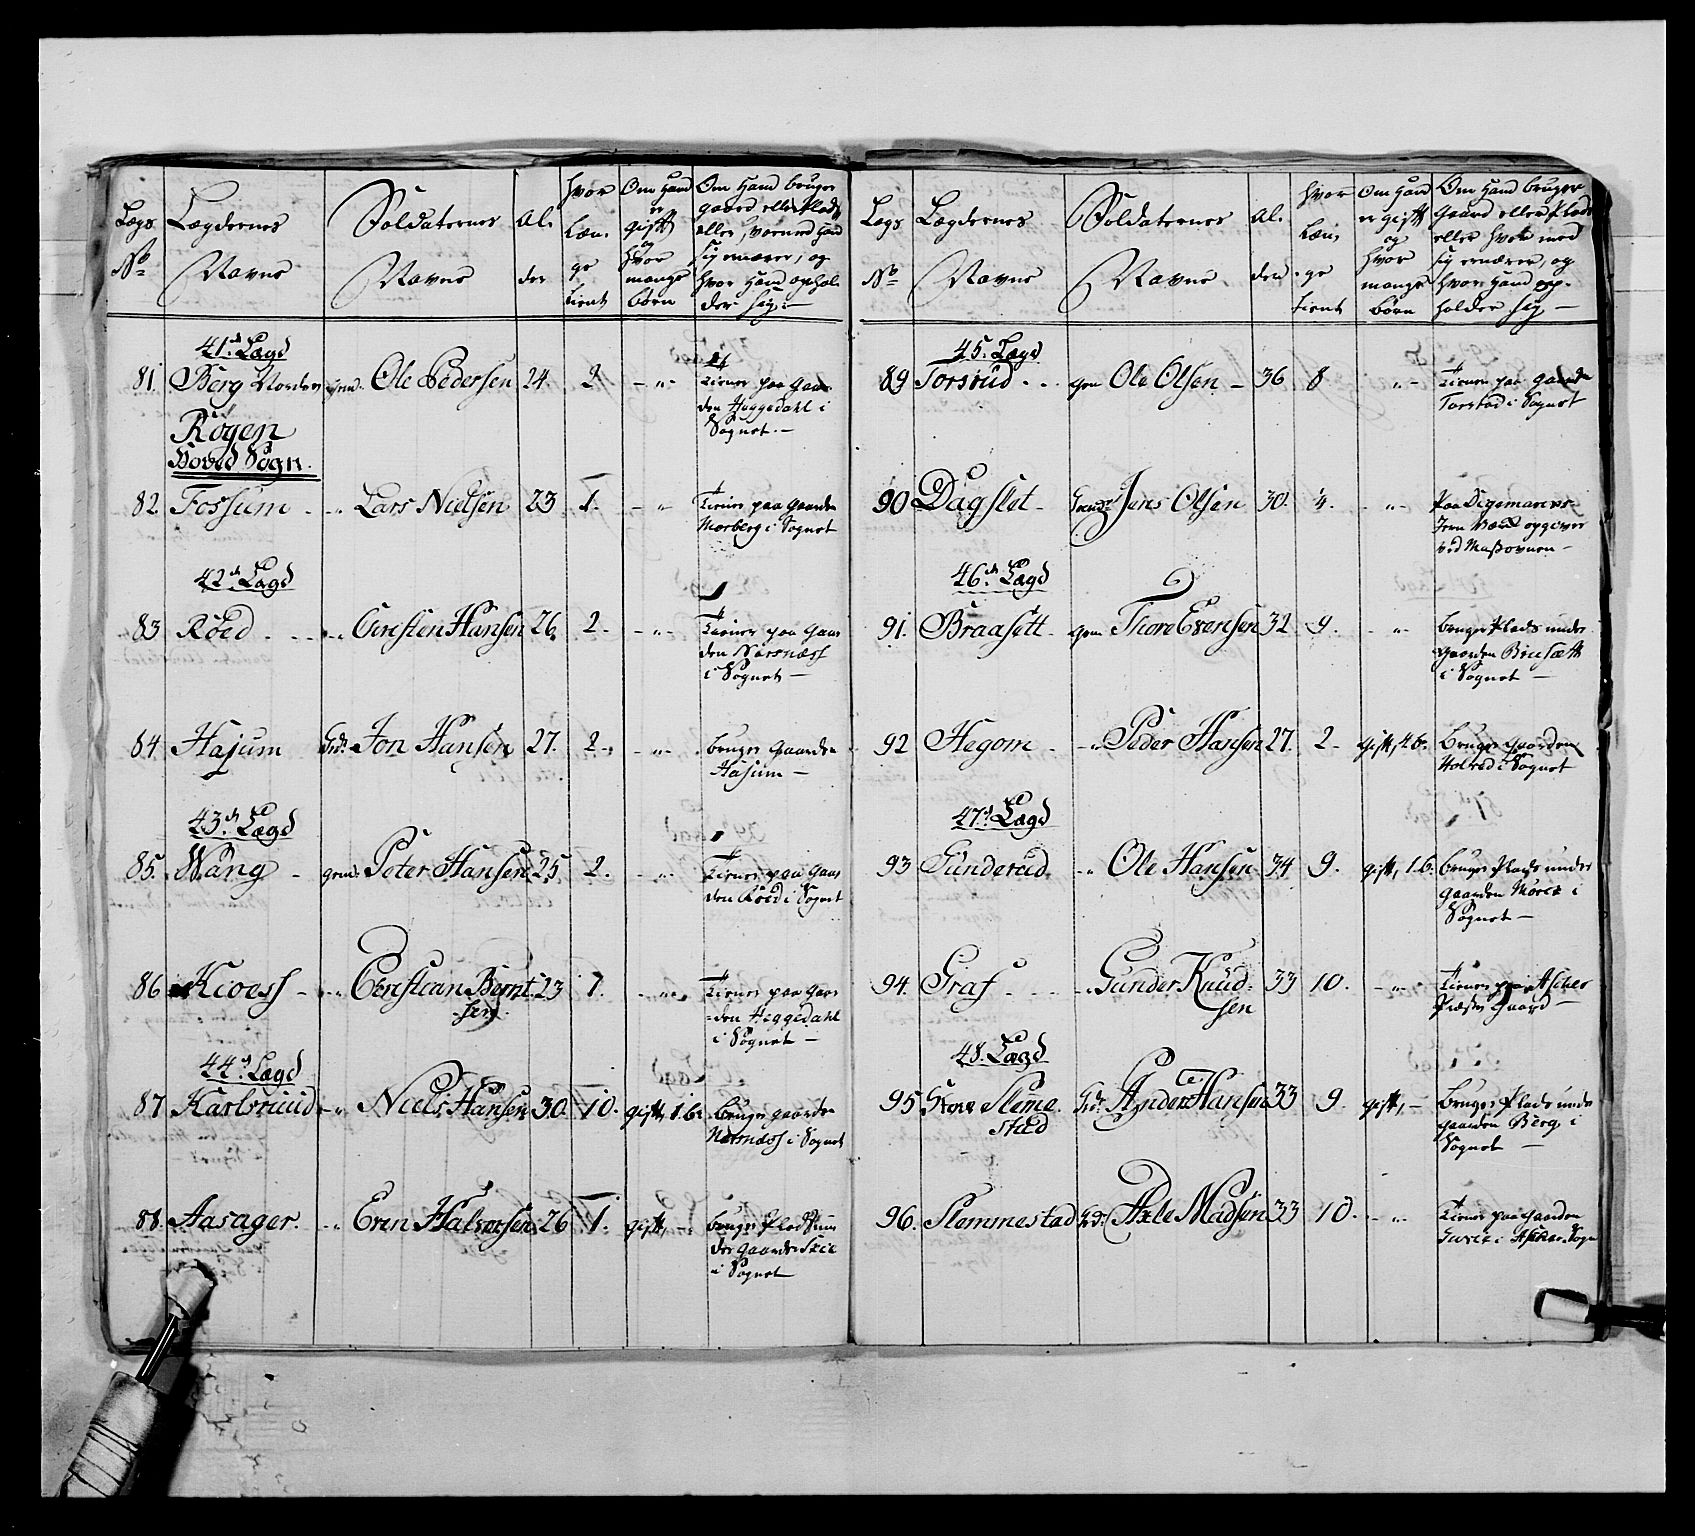 Lægs No
Lægdernes Navne
Soldaternes Navne
Al- der
hvor Læn- ge tient
Om Hand er gift og hvor mange børn
Om Hand bruger gaard eller Plads eller, hvormed Hand sig ernærer, og hvor Hand ophol- der sig. —
41de Lægd
81. Berg Norden gem. Ole Pedersen 24. 2 – „ –
Tiener paa Gaar
den Heggedahl i
Sognet. —
Røyen
Hoved Sogn.
82 Fossum – „ Lars Nielsen 23 1. – „
Tiener paa Gaarden
Morberg i Sognet
42de Lægd
83 Røed – „ Christen Hansen 26. 2. – „ –
Tiener paa Gaar
den Næsnæss
i Sognet —
84 Hajum Grd. Jon Hansen 27. 2. „ –
bruger Gaarden
Hajum —
43de Lægd
85. Wang – gem. Peter Hansen 25 2. – „ –
Tiener paa Gaar
den Røed i Sognet
86 Kioess – „ Christian Bernt- 23 1. „
sen
Tiener paa Gaar
den Heggedahl
i Sognet —
44de Lægd
87 Karlsruud „ Niels Hansen 30. 10. gift, 1. b.
bruger gaarden
Næsnæss i Sognet
88. Aasager. „ Even Halvorsen 26 1. gift, –
bruger Plads un
der gaarden
i Sognet
Lægs No
Lægdernes Navne
Soldaternes Navne.
Al- den
hvor Læn- ge tient
Om Hand er gift og hvor mange børn
Om Hand bruger Gaard eller Plads eller hvor med sig ernærer, og hvor Hand op- holder sig —
45. Lægd
89 Torsrud . . gem Ole Olsen – 36. 8 „ –
Tiener paa Gaarden
Torstad i Sognet
90 Dagslet – Jens Olsen 30. 4. – „ –
Paa
Jern Værk opgiver
ved Massovnen –
46de Lægd
91. Braasett – gem Thore Evensen 32 9. „ –
bruger Plads under
Gaarden
i Sognet —
92 Hegom – „ Peder Hansen 27. 2. gift, 4 b.
Bruger Gaarden
i Sognet
47de Lægd
93 Gunderud. „ Ole Hansen 34 9. gift, 1. b.
bruger Plads under
gaarden i
Sognet —
94. Graf – – – „ Gunder Knud- 33 10. – „ –
sen
Tiener paa Asker
Præste Gaard —
48. Lægd
95 Store Sleme Grd. Hansen 33 9. gift, –
stad
Bruger Plads unde
gaarden Berg i
Sognet —
96. Slemmestad Grd. Axle Madsen 33 10. – „ –
Tiener paa Gaarden
i Asker Sogn